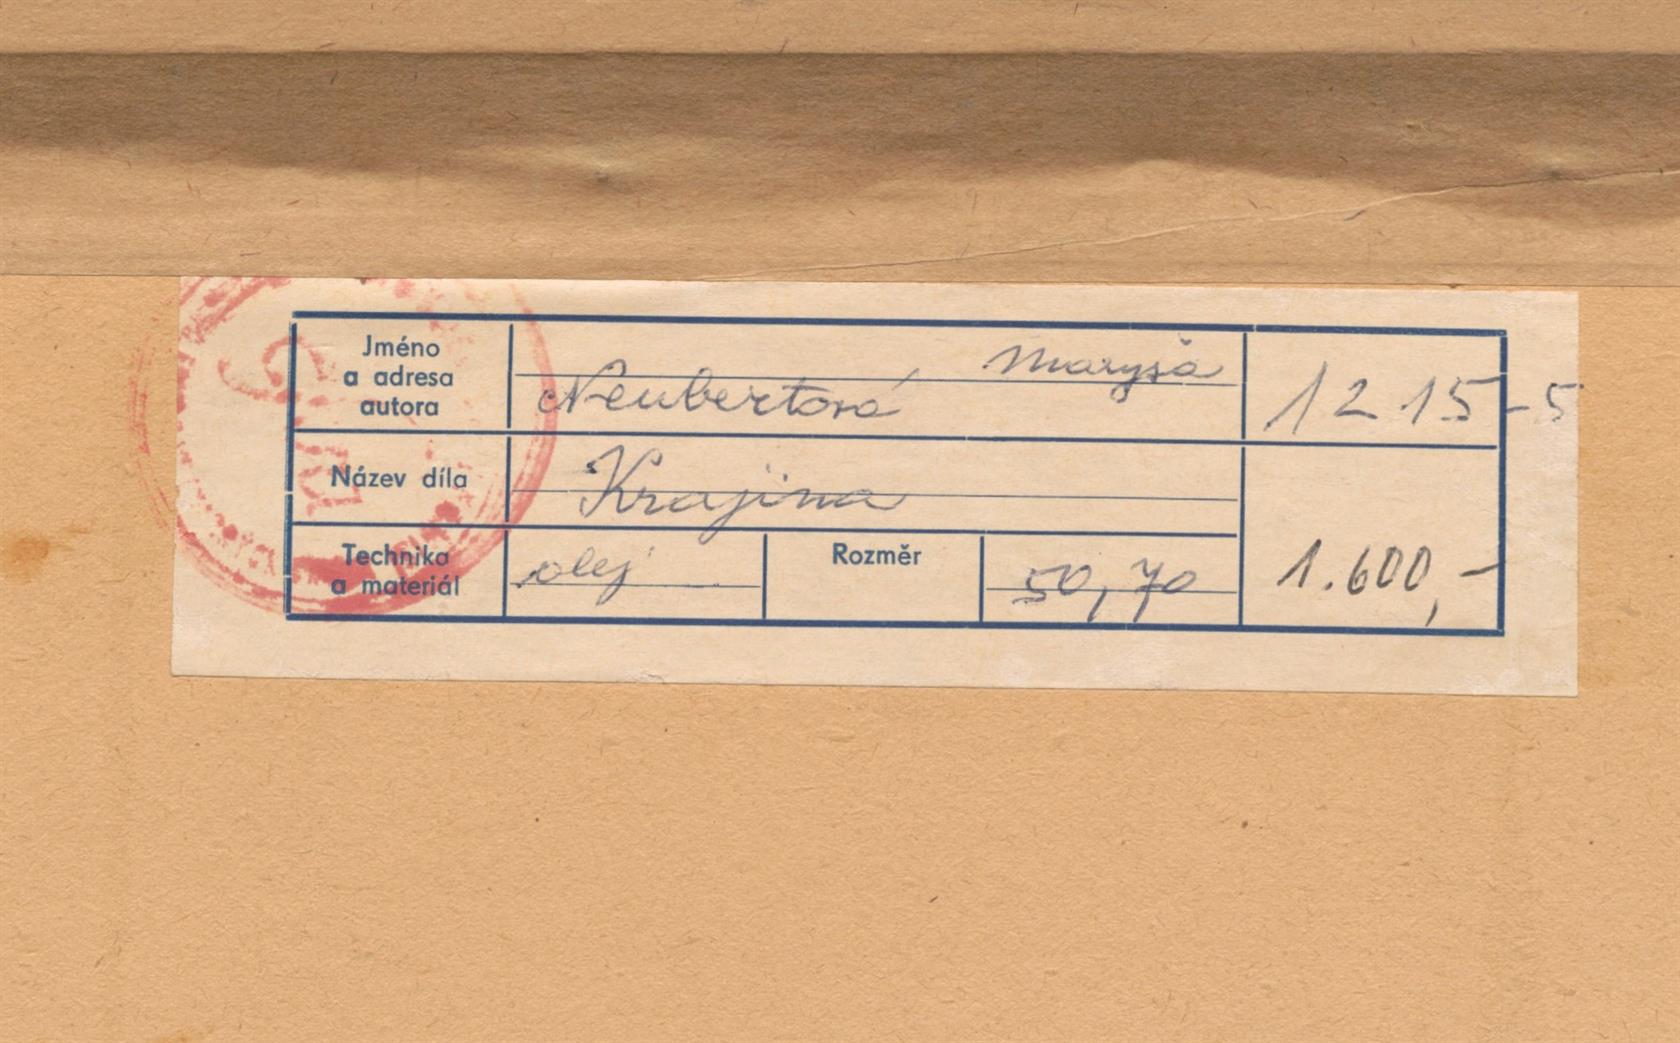 Jméno
a adresa
autora
Maryša
Neubertová
1215-5
Název díla
Krajina
Technika
a materiál
olej
Rozměr
50,70
1.600,-